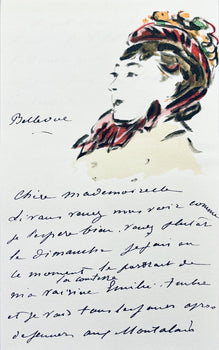 Bellevue
Chère mademoiselle
Si vous venez nous voir comme
je l'espère bien. Venez plutôt
le dimanche je fais en
ce moment le portrait de
la comtesse
ma voisine Emilie. Ambre
et je vais tous les jours après
déjeuner aux Montalais